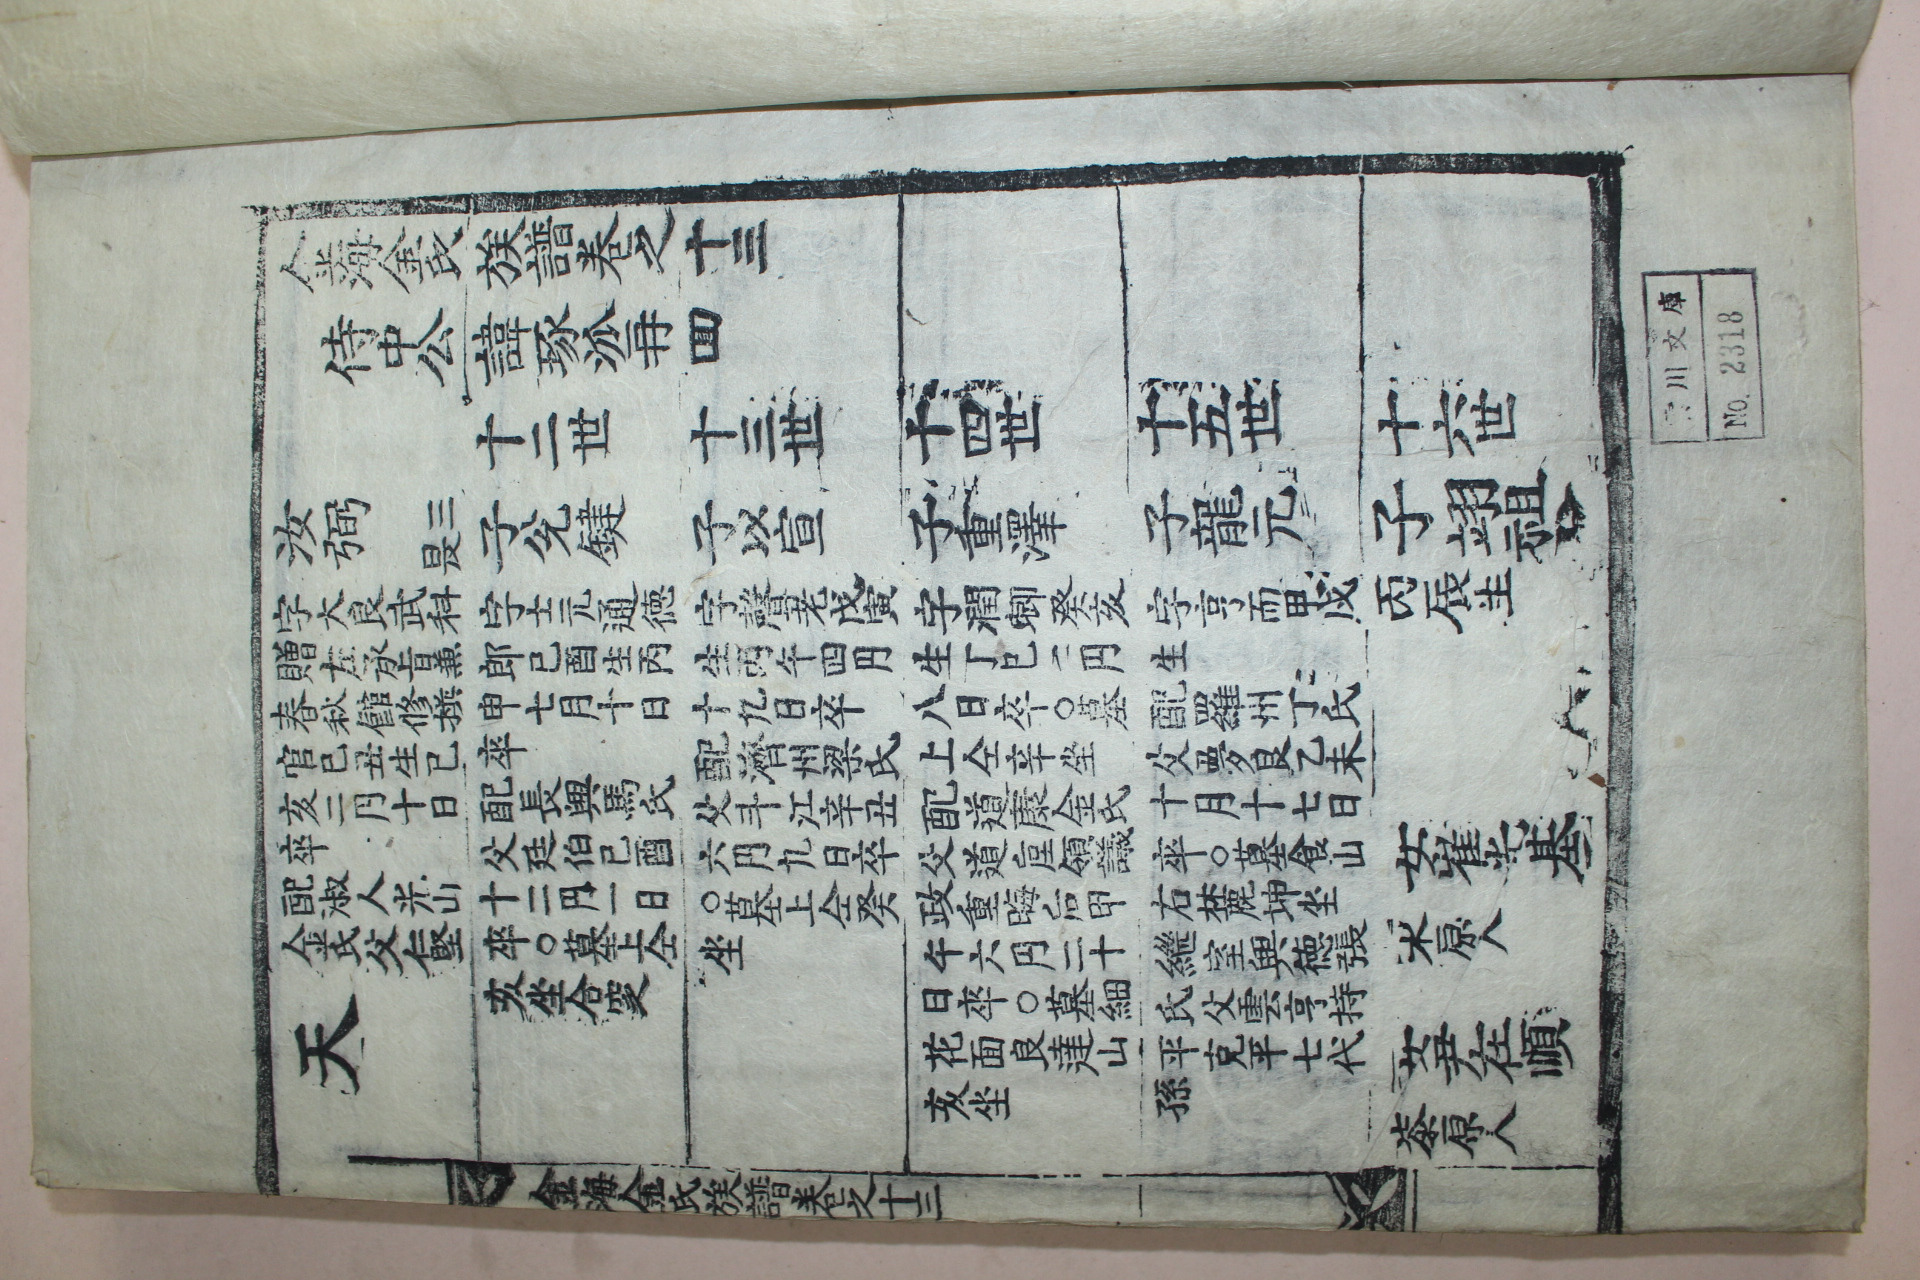 金海金氏族譜卷之十三
侍中公諱琢派 冊四
十二世
十三世
十四世
十五世
十六世
汝弼
字大良武科
贈左承旨兼
春秋館修撰
官己丑生己
亥二月十日
卒
配淑人光山
金氏父仁堅
天
子允鍵
字士元通德
郎己酉生丙
申七月十日
卒
配長興馬氏
父廷伯己酉
十二月一日
卒○墓上仝
亥坐合窆
子必宣
字馨老戊寅
生丙午四月
十九日卒
配濟州梁氏
父斗江辛丑
六月九日卒
○墓上仝癸
坐
子重澤
字潤卿癸亥
生丁巳二月
八日卒○墓
上仝辛坐
配道康金氏
父道恒領議
政重晦后甲
午六月二十
日卒○墓細
花面良達山
亥坐
子龍元
字亨而甲戌
生
配羅州丁氏
父 良乙未
十月十七日
卒○墓食山
右麓坤坐
繼室興德張
氏父雲亨持
平克平七代
孫
子翊祖
丙辰生
女崔光基
原人
女尹在順
漆原人
金海金氏族譜卷之十三
川文庫
No. 2318